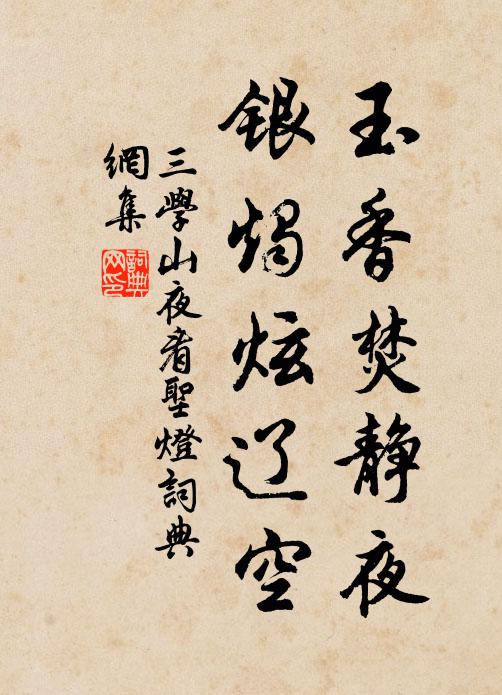 玉香焚静夜
银烛炫辽空
三學山夜看聖燈詞典
網集
詞典网印